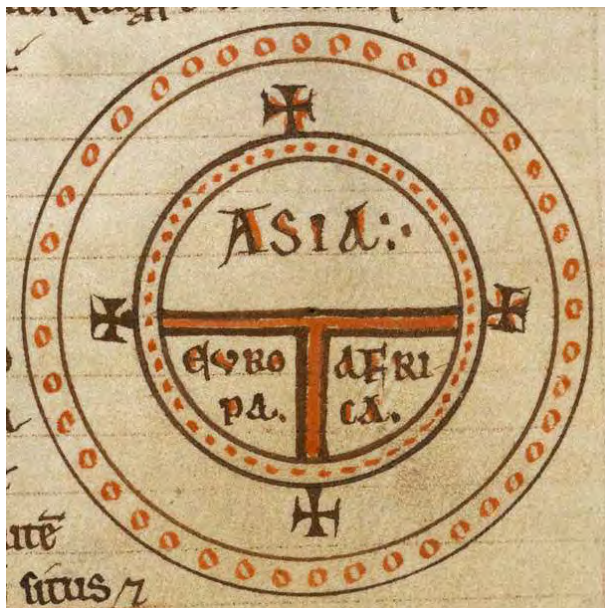 ASIA:·
EURO
PA.
AFRI
CA.
situs ⁊